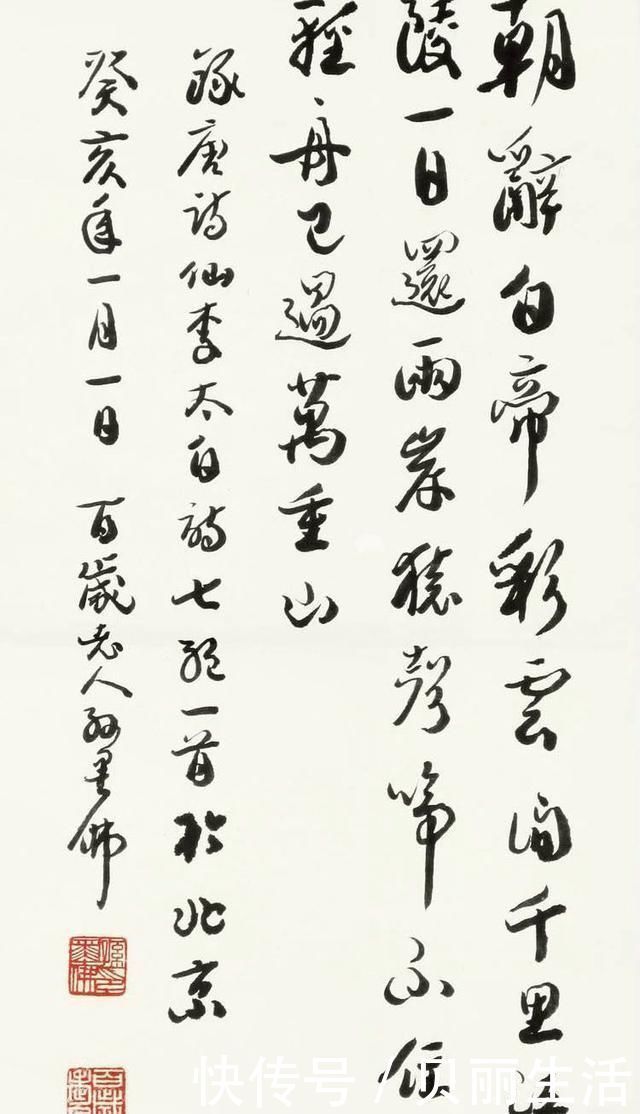 朝辭白帝彩雲間千里江
陵一日還兩岸猿聲啼不住
輕舟已過萬重山
錄唐詩仙李太白詩七絕一首於北京
癸亥年一月一日 百歲老人孫墨佛
快传号 / 贝丽生活